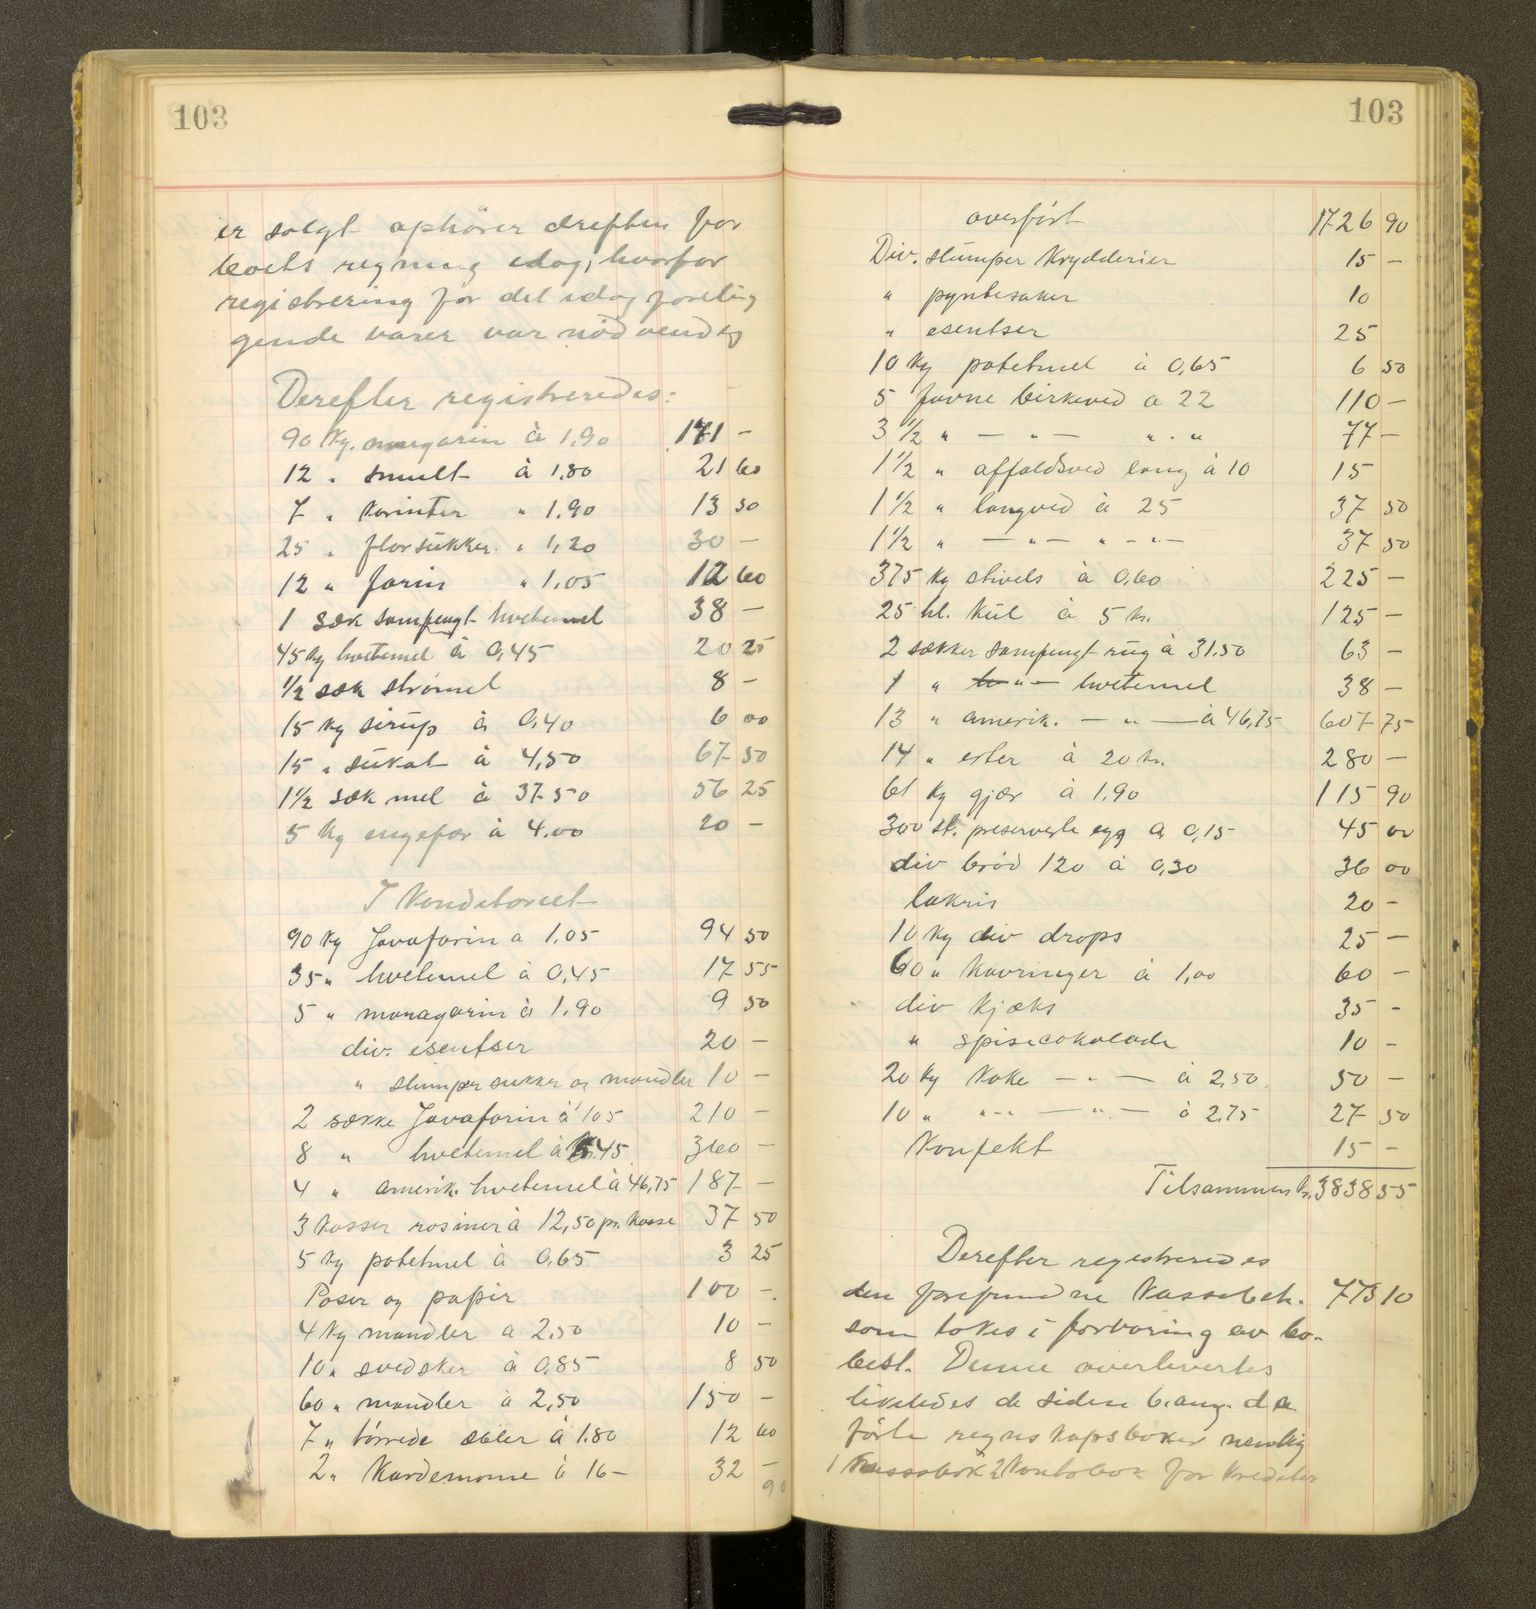 103
er solgt ophører driften for
boets regning idag, hvorfor
registrering før det idag forelig
gende varer var nødvendig
Derefter registreredes:
90 kg. margarin à 1,90 171 –
12 " smult à 1,80 21 60
7 " korinter " 1,90 13 30
25 " florsukker " 1,20 30 –
12 " farin " 1,05 12 60
1 sæk sampengt hvetemel 38 –
45 kg hvetemel à 0,45 20 25
1/2 sæk strømel 8 –
15 kg sirup à 0,40 6 00
15 " sukat à 4,50 67 50
1 1/2 sæk mel à 37.50 56 25
5 kg engefær à 4.00 20 –
I Konditoriet
90 kg Javafarin a 1.05 94 50
35 " hvetemel à 0,45 17 55
5 " margarin à 1.90 9 50
div. esentser 20 –
" slumper sukker og mandler 10 –
2 sække Javafarin à 105 210 –
8 " hvetemel à 45 360 –
4 " amerik. hvetemel à 46,75 187 –
3 kasser rosiner à 12,50 pr. kasse 37 50
5 kg potetmel à 0,65 3 25
Poser og papir 100 –
4 kg mandler a 2,50 10 –
10 " svedsker à 0,85 8 50
60 " mandler à 2,50 150 –
7 " tørrede æbler à 1.80 12 60
2 " Kardemome à 16– 32 –
90
103
overført 1726 90
Div. slumper Krydderier 15 –
" pyntesaker 10
" esentser 25
10 kg potetmel à 0,65 6 50
5 favne birkeved a 22 110 –
3 1/2 " — " — " . " 77 –
1 1/2 " affaldsved lang à 10 15
1 1/2 " langved à 25 37 50
1 1/2 " — " — " – " – 37 50
375 kg stivels à 0.60 225 –
25 hl. kul à 5 kr. 125 –
2 sækker sampengt rug à 31.50 63 –
1 " — " — hvetemel 38 –
13 " amerik. — " — à 46,75 607 75
14 " erter à 20 kr. 280 –
61 kg gjær à 1.90 115 90
300 st. preserverte egg a 0,15 45 00
div brød 120 à 0,30 36 00
lakris 20 –
10 kg div drops 25 –
60 " kavringer à 1,00 60 –
div kjæks 35 –
" spisecokolade 10 –
20 kg koke — " — à 2,50 50 –
10 " " – " — " — à 2,75 27 50
Konfekt 15 –
Tilsammen kr. 3838 55
Derefter registreredes
den forefundne Kassebeh. 773 10
som tokes i forvaring av bo-
best. Denne overlevertes
likeledes de siden b. ang. d
førte regnskapsbøker nemlig
1 Kassabok 2 Kontobok for Kreditor